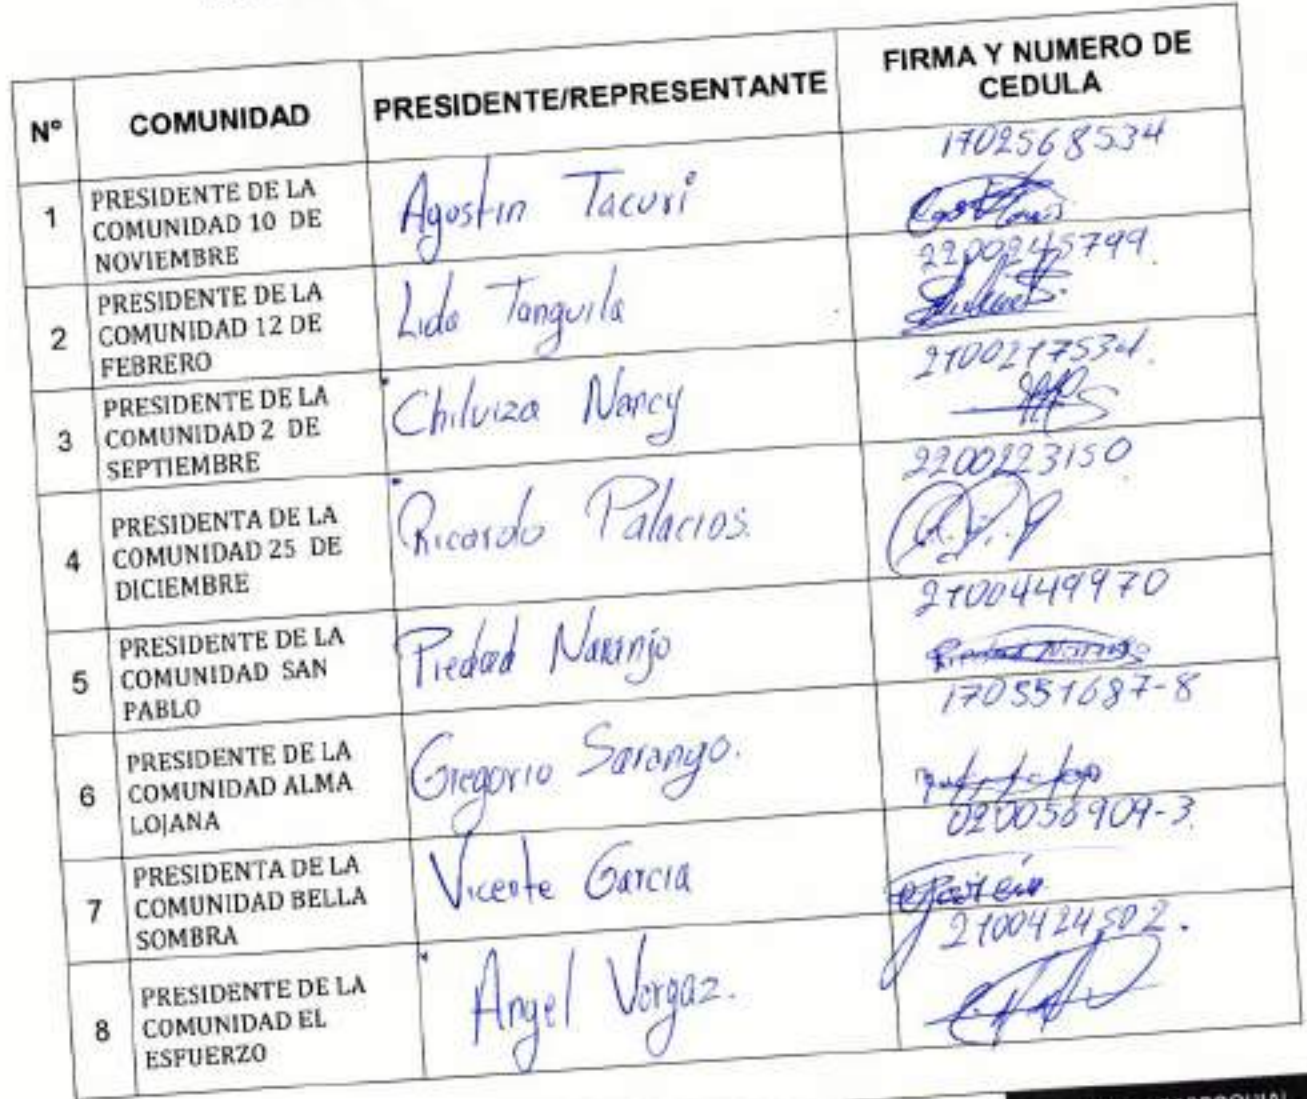 Nº COMUNIDAD PRESIDENTE/REPRESENTANTE FIRMA Y NUMERO DE CEDULA
1702568534
1 PRESIDENTE DE LA COMUNIDAD 10 DE NOVIEMBRE Agostin Tacuri
2200245799.
2 PRESIDENTE DE LA COMUNIDAD 12 DE FEBRERO Lida Tanguila
2100217534.
3 PRESIDENTE DE LA COMUNIDAD 2 DE SEPTIEMBRE Chiluiza Nancy
2200223150
4 PRESIDENTA DE LA COMUNIDAD 25 DE DICIEMBRE Ricardo Palacios.
2100449970
5 PRESIDENTE DE LA COMUNIDAD SAN PABLO Piedad Naranjo Piedad Naranjo
170551687-8
6 PRESIDENTE DE LA COMUNIDAD ALMA LOJANA Gregorio Sarango.
020056909-3.
7 PRESIDENTA DE LA COMUNIDAD BELLA SOMBRA Vicente Garcia
2100424502.
8 PRESIDENTE DE LA COMUNIDAD EL ESFUERZO Angel Vargaz.